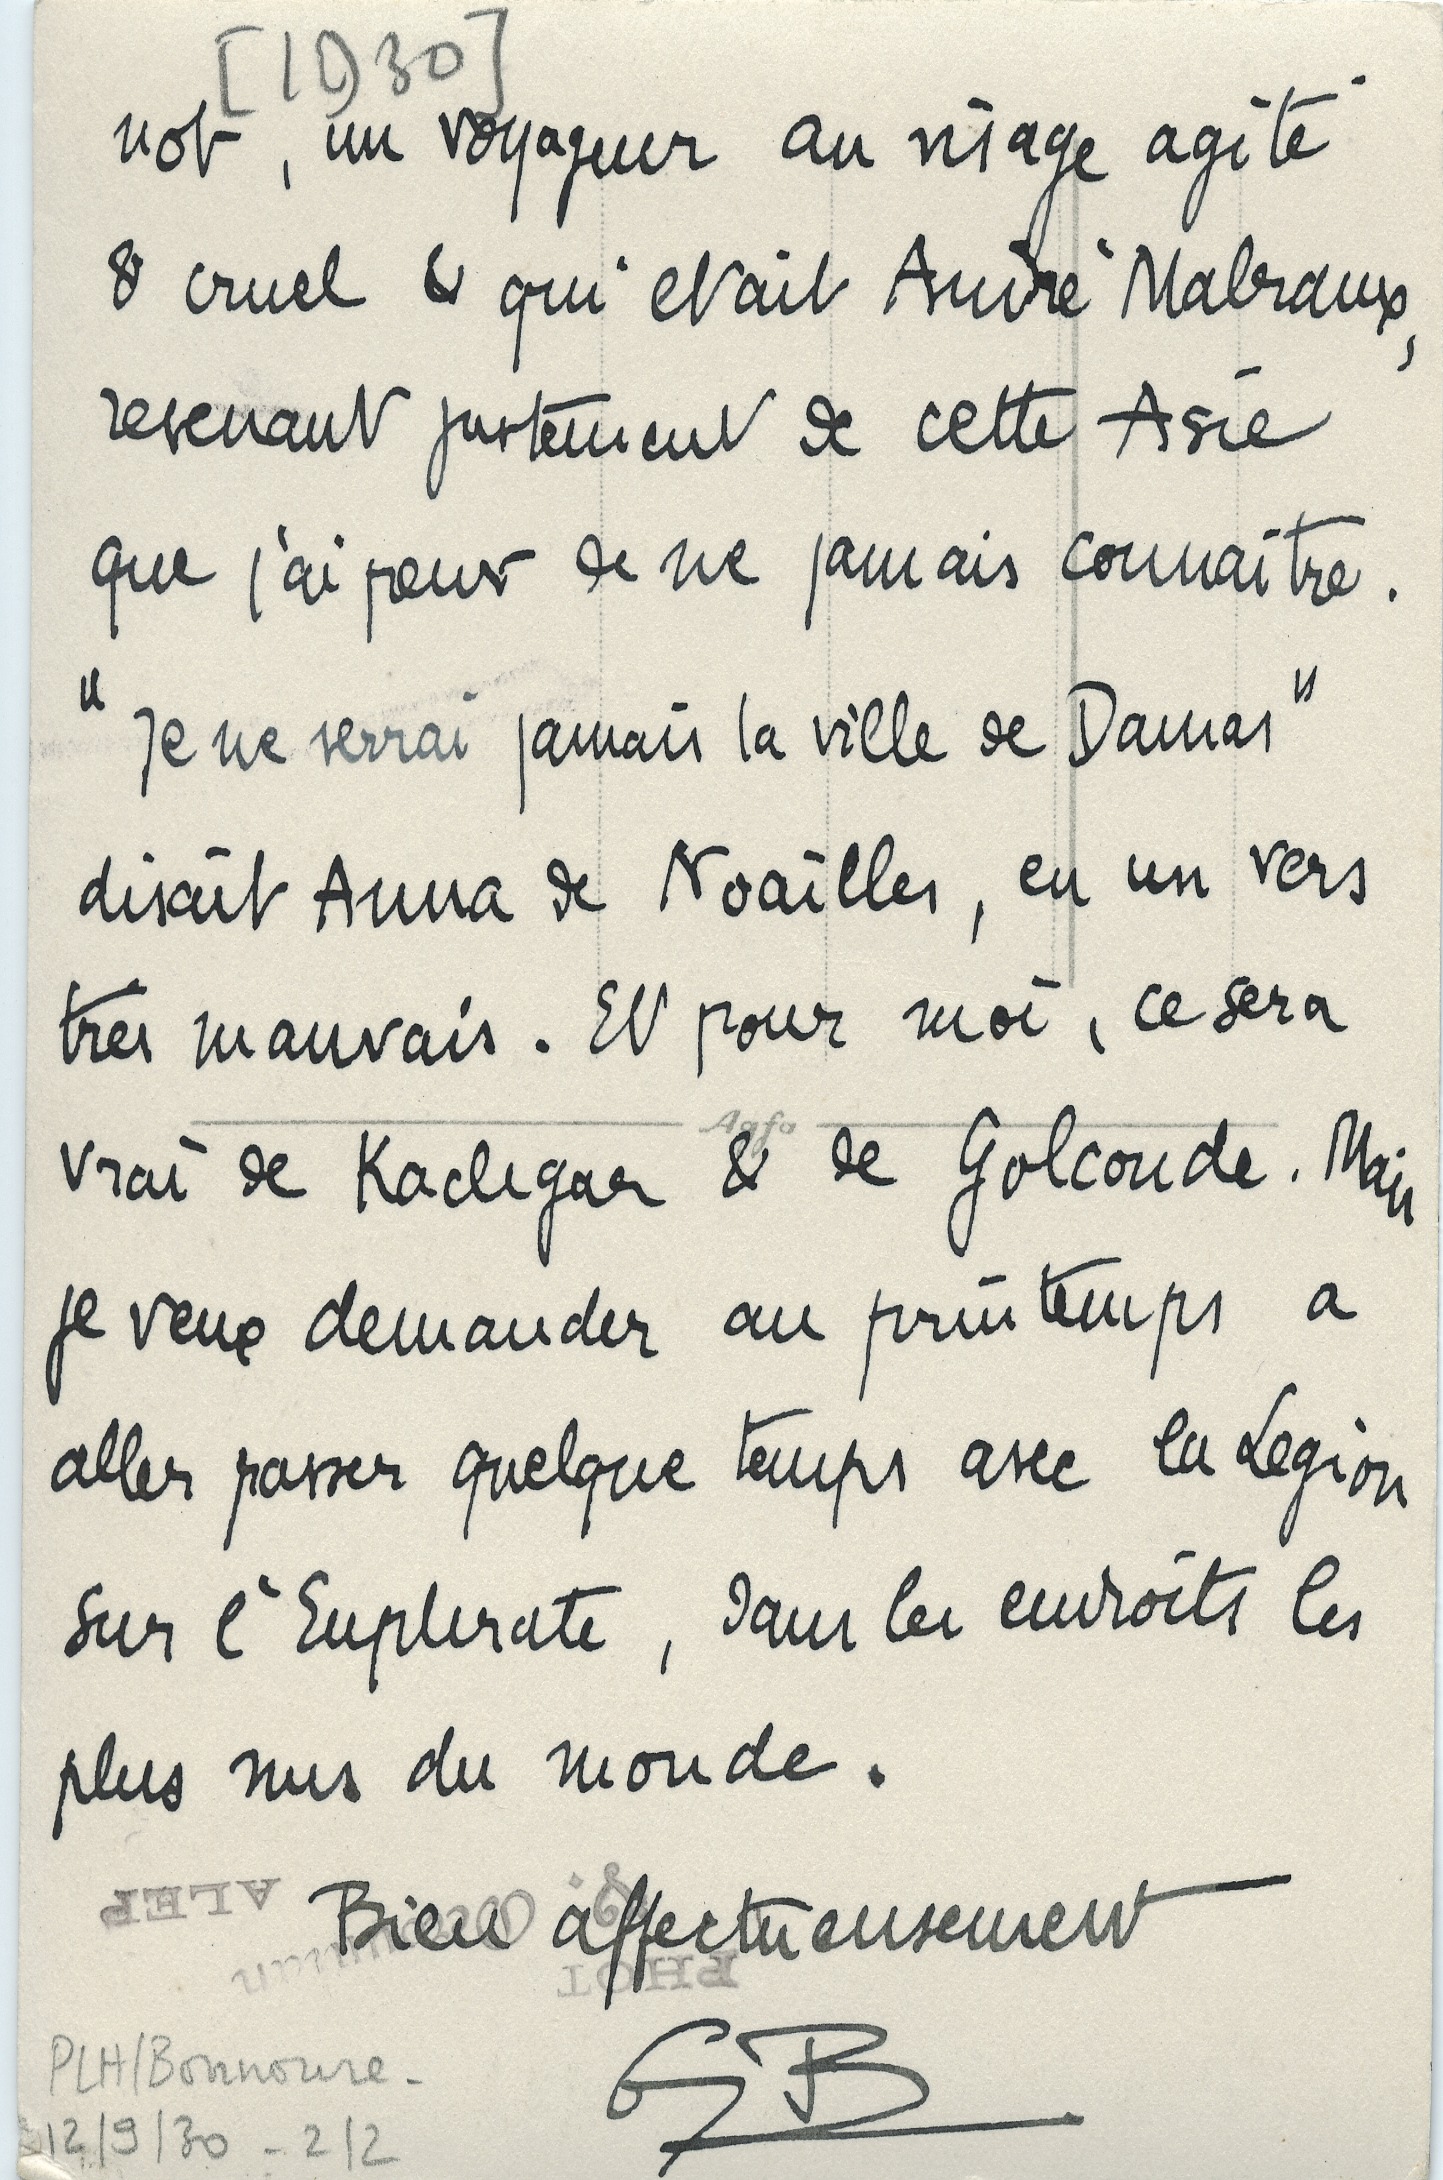 [1930]
not, un voyageur au visage agité
& cruel & qui était André Malraux,
revenant justement de cette Asie
que j'ai peur de ne jamais connaître.
"Je ne verrai jamais la ville de Damas"
disait Anna de Noailles, en un vers
très mauvais. Et pour moi, ce sera
vrai de Kachgar & de Golconde. Mais
je veux demander au printemps a
aller passer quelque temps avec la Légion
sur l'Euphrate, dans les endroits les
plus nus du monde.
Bien affectueusement
GB
Agfa
PHOT
ALEP
PLH/Bonnoure-
12/9/30 - 2/2